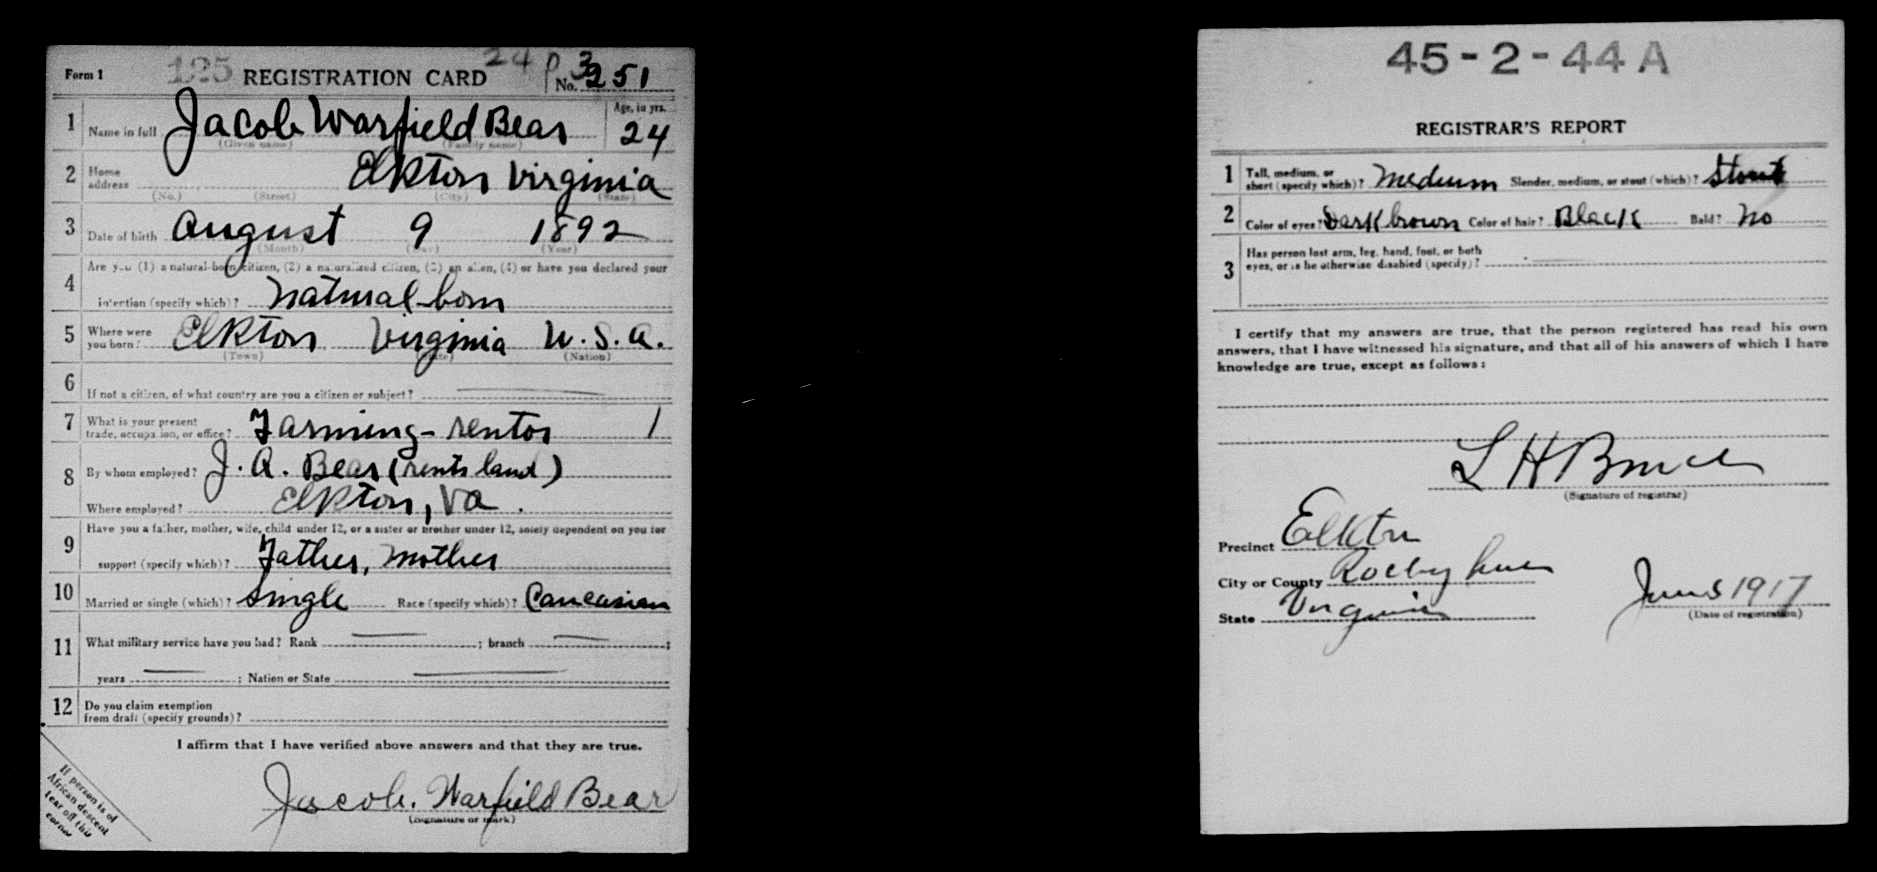 Form 1 125 REGISTRATION CARD 24 No. 3251
1 Name in full Jacob Warfield Bear Age, in yrs. 24
(Given name) (Family name)
2 Home address Elkton Virginia
(No.) (Street) (City) (State)
3 Date of birth August 9 1892
(Month) (Day) (Year)
4 Are you (1) a natural-born citizen, (2) a naturalized citizen, (3) an alien, (4) or have you declared your
intention (specify which)? natural-born
5 Where were you born? Elkton Virginia U.S.A.
(Town) (State) (Nation)
6 If not a citizen, of what country are you a citizen or subject?
7 What is your present trade, occupation, or office? Farming-rentor 1
8 By whom employed? J. A. Bear (rents land)
Where employed? Elkton, Va.
9 Have you a father, mother, wife, child under 12, or a sister or brother under 12, solely dependent on you for
support (specify which)? Father, mother
10 Married or single (which)? Single Race (specify which)? Caucasian
11 What military service have you had? Rank ; branch ;
years ; Nation or State
12 Do you claim exemption
from draft (specify grounds)?
I affirm that I have verified above answers and that they are true.
Jacob. Warfield Bear
(Signature or mark)
If person is of
African descent
tear off this
corner
45-2-44 A
REGISTRAR'S REPORT
1 Tall, medium, or short (specify which)? Medium Slender, medium, or stout (which)? Stout
2 Color of eyes? Dark brown Color of hair? Black Bald? No
3 Has person lost arm, leg, hand, foot, or both
eyes, or is he otherwise disabled (specify)?
I certify that my answers are true, that the person registered has read his own
answers, that I have witnessed his signature, and that all of his answers of which I have
knowledge are true, except as follows:
L H Bruce
(Signature of registrar)
Precinct Elkton
City or County Rockingham
State Virginia June 5 1917
(Date of registration)